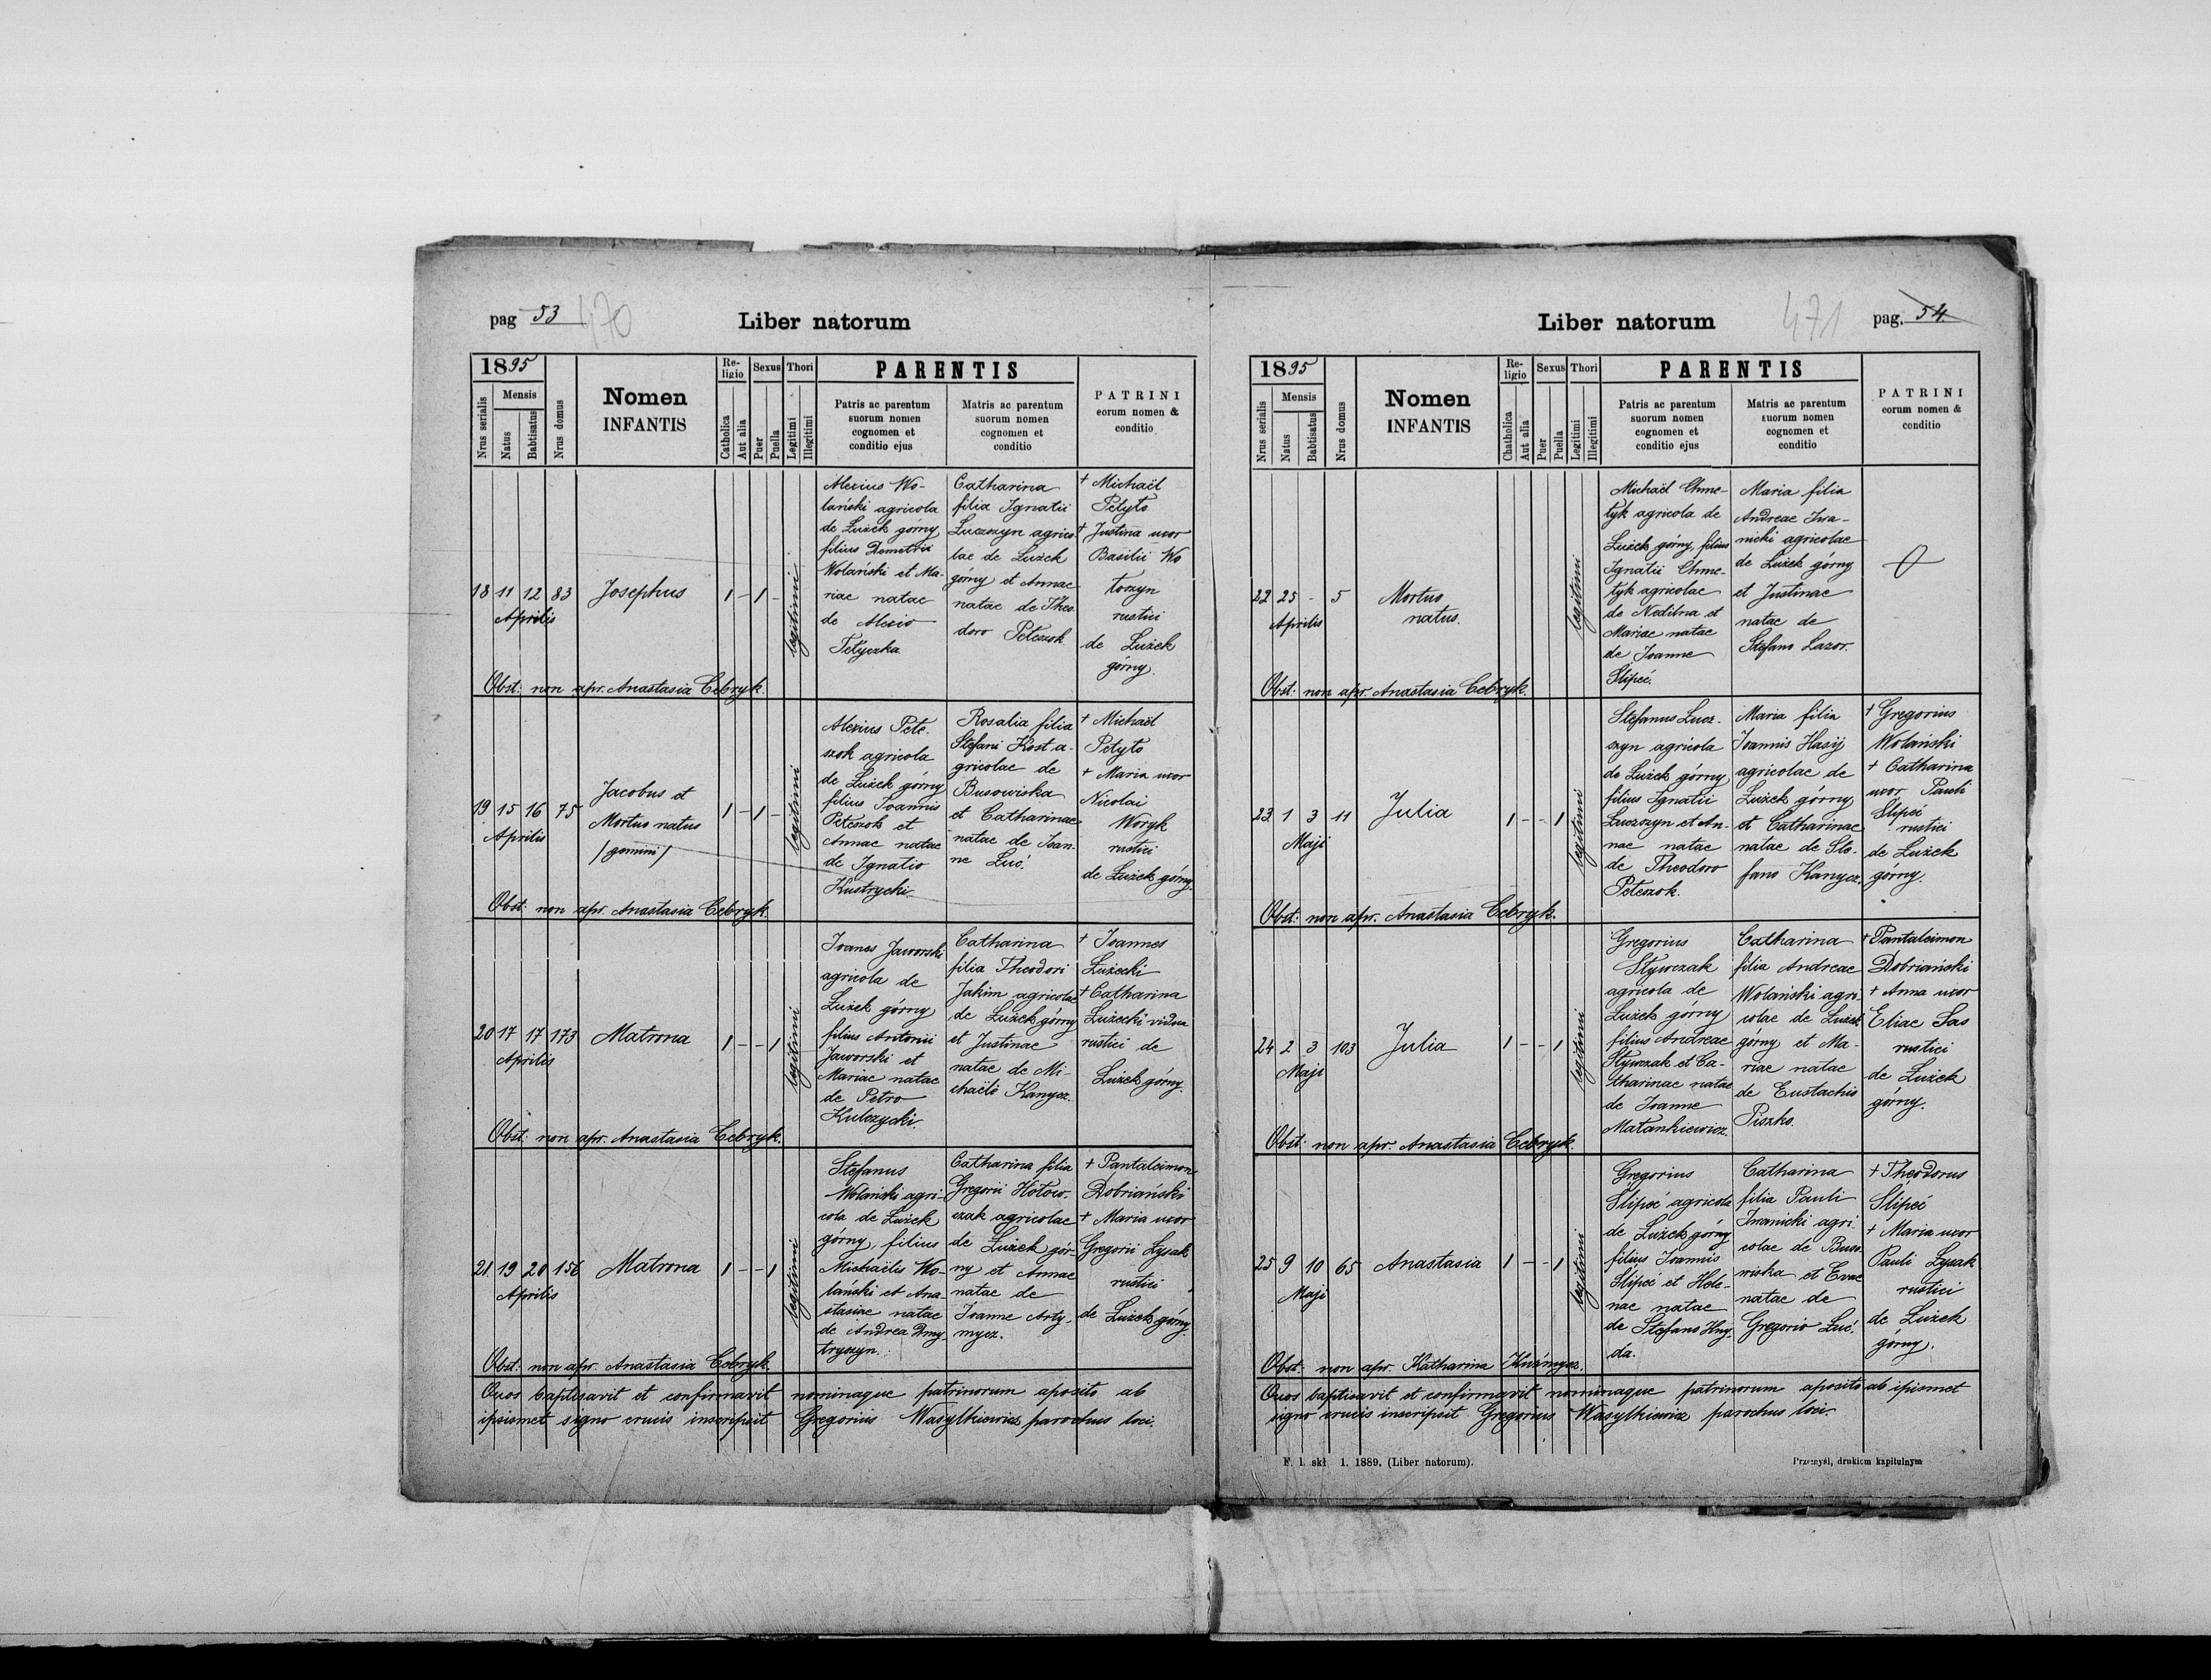 pag 53 470
Liber natorum
1895
Mensis
Nrus serialis
Natus
Babtisatus
Nrus domus
Nomen
INFANTIS
Re-
ligio
Catholica
Aut alia
Sexus
Puer
Puella
Thori
Legitimi
Illegitimi
PARENTIS
Patris ac parentum
suorum nomen
cognomen et
conditio ejus
Matris ac parentum
suorum nomen
cognomen et
conditio
PATRINI
eorum nomen &
conditio
18 11 12 83
Aprilis
Josephus
1 - 1 -
legitimi
Alexius Wo-
lański agricola
de Łużek górny
filius Demetrii
Wolański et Ma-
riae natae
de Alexio
Tetyczka
Catharina
filia Ignatii
Luczszyn agrico-
lae de Łużek
górny et Annae
natae de Theo
doro Peteszok
+ Michaël
Petyto
+ Justina uxor
Basilii Wo
toszyn
rustici
de Łużek
górny.
Obst: non apr. Anastasia Cebryk.
19 15 16 75
Aprilis
Jacobus et
Mortuo natus
/gemini/
1 - 1 -
legitimi
Alexius Pete-
szok agricola
de Łużek górny
filius Joannis
Peteszok et
Annae natae
de Ignatio
Kustrycki
Rosalia filia
Stefani Kost a-
gricolae de
Busowiska
et Catharinae
natae de Joan-
ne Luć.
+ Michaël
Petyto
+ Maria uxor
Nicolai
Woryk
rustici
de Łużek górny.
Obst: non apr. Anastasia Cebryk.
20 17 17 173
Aprilis
Matrona
1 - - 1
legitimi
Joanes Jaworski
agricola de
Łużek górny
filius Antonii
Jaworski et
Mariae natae
de Petro
Kulczycki.
Catharina
filia Theodori
Jakim agricolae
de Łużek górny
et Justinae
natae de Mi-
chaële Kanycz.
+ Joannes
Łużecki
+ Catharina
Łużecki vidua
rustici de
Łużek górny.
Obst: non apr. Anastasia Cebryk.
21. 19 20 156
Aprilis
Matrona
1 - - 1
legitimi
Stefanus
Wolański agri-
cola de Łużek
górny, filius
Michaëlis Wo-
lański et Ana-
stasiae natae
de Andrea Dmy
tryszyn.
Catharina filia
Gregorii Hołow-
czak agricolae
de Łużek gór-
ny et Annae
natae de
Joanne Arty-
mycz.
+ Pantaleimon
Dobriański
+ Maria uxor
Gregorii Łysak
rustici
de Łużek górny.
Obst: non apr. Anastasia Cebryk.
Quos baptisavit et confirmavit nominaque patrinorum aposito ab
ipsismet signo crucis inscripsit Gregorius Wasylkiewicz parochus loci.
Liber natorum
471 pag. 54.
1895
Mensis
Nrus serialis
Natus
Babtisatus
Nrus domus
Nomen
INFANTIS
Re-
ligio
Chatholica
Aut alia
Sexus
Puer
Puella
Thori
Legitimi
Illegitimi
PARENTIS
Patris ac parentum
suorum nomen
cognomen et
conditio ejus
Matris ac parentum
suorum nomen
cognomen et
conditio
PATRINI
eorum nomen &
conditio
22 25 - 5
Aprilis
Mortuo
natus.
legitimi
Michaël Chme-
tyk agricola de
Łużek górny, filius
Ignatii Chme-
tyk agricolae
de Nedilna et
Mariae natae
de Joanne
Slipeć.
Maria filia
Andreae Iwa-
nicki agricolae
de Łużek górny
et Justinae
natae de
Stefano Lazor.
Obst: non apr. Anastasia Cebryk.
23. 1 3 11
Maji
Julia
1 - - 1
legitimi
Stefanus Lucz-
szyn agricola
de Łużek górny
filius Ignatii
Luczszyn et An-
nae natae
de Theodoro
Peteszok.
Maria filia
Joannis Hasij
agricolae de
Łużek górny
et Catharinae
natae de Ste-
fano Kanycz.
+ Gregorius
Wolański
+ Catharina
uxor Pauli
Slipeć
rustici
de Łużek
górny.
Obst: non apr. Anastasia Cebryk.
24 2 3 103
Maji
Julia
1 - - 1
legitimi
Gregorius
Stywczak
agricola de
Łużek górny
filius Andreae
Stywczak et Ca-
tharinae natae
de Joanne
Matankiewicz.
Catharina
filia Andreae
Wolański agri-
colae de Łużek
górny et Ma-
riae natae
de Eustachio
Piszko.
+ Pantaleimon
Dobriański
+ Anna uxor
Eliae Sas
rustici
de Łużek
górny.
Obst: non apr. Anastasia Cebryk.
25 9 10 65
Maji
Anastasia
1 - - 1
legitimi
Gregorius
Slipeć agricola
de Łużek górny
filius Joannis
Slipeć et Hele-
nae natae
de Stefano Hny-
da.
Catharina
filia Pauli
Iwanicki agri-
colae de Buso-
wiska et Evae
natae de
Gregorio Luć.
+ Theodorus
Slipeć
+ Maria uxor
Pauli Łysak
rustici
de Łużek
górny.
Obst: non apr. Katharina Kuźmycz.
Quos baptisavit et confirmavit nominaque patrinorum aposito ab ipsismet
signo crucis inscripsit Gregorius Wasylkiewicz parochus loci.
F. l. skł. 1. 1889. (Liber natorum).
Przemyśl, drukiem kapitulnym